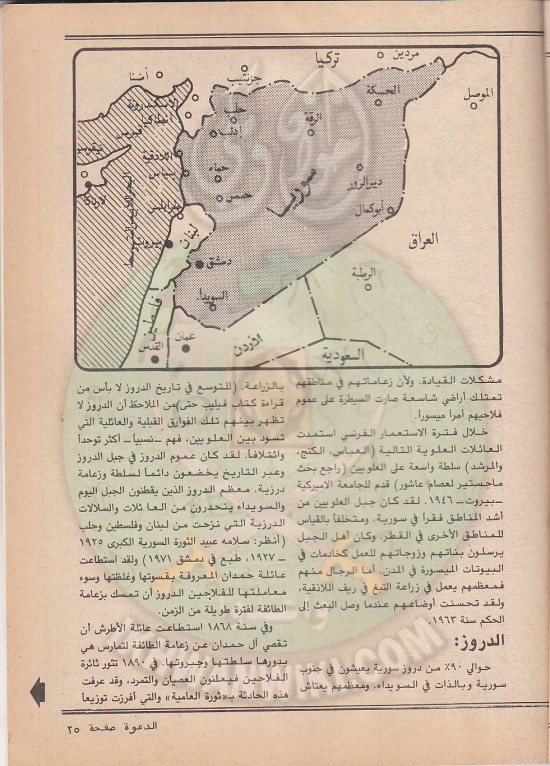 تركيا
ماردين
أضنا
جزنتيب
الموصل
الاسكندرونة
انطاكيا
حلب
ادلب
الرقة
الحسكة
قبرص
نيقوسيا
لارناكا
اللاذقية
بانياس
حماه
حمص
سوريا
ديرالزور
أبوكمال
طرابلس
البحر الأبيض المتوسط
لبنان
بيروت
دمشق
السويداء
العراق
الرطبة
فلسطين
القدس
عمان
الأردن
السعودية
مشكلات القيادة. ولأن زعاماتهم في مناطقهم
تمتلك أراضي شاسعة صارت السيطرة على عموم
فلاحيهم أمراً ميسوراً.
خلال فترة الاستعمار الفرنسي استمدت
العائلات العلوية التالية (العباس، الكنج،
والمرشد) سلطة واسعة على العلويين (راجع بحث
ماجستير لعصام عاشور) قدم للجامعة الاميركية
ـ بيروت ـ ١٩٤٦. لقد كان جبل العلويين من
أشد المناطق فقراً في سورية. ومتخلفاً بالقياس
للمناطق الأخرى في القطر. وكان أهل الجبل
يرسلون بناتهم وزوجاتهم للعمل كخادمات في
البيوتات الميسورة في المدن. أما الرجال منهم
فمعظمهم يعمل في زراعة التبغ في ريف اللاذقية،
ولقد تحسنت أوضاعهم عندما وصل البعث إلى
الحكم سنة ١٩٦٣.
الدروز:
حوالي ٩٠٪ من دروز سورية يعيشون في جنوب
سورية وبالذات في السويداء. ومعظمهم يعتاش
بالزراعة. (للتوسع في تاريخ الدروز لا بأس من
قراءة كتاب فيليب حتى) من الملاحظ أن الدروز لا
تظهر بينهم تلك الفوارق القبلية والعائلية التي
تسود بين العلويين، فهم ـ نسبياً ـ أكثر توحداً
وائتلافاً. لقد كان عموم الدروز في جبل الدروز
وعبر التاريخ يخضعون دائماً لسلطة وزعامة
درزية. معظم الدروز الذين يقطنون الجبل اليوم
والسويداء ينحدرون من العائلات والسلالات
الدرزية التي نزحت من لبنان وفلسطين وحلب
(أنظر: سلامه عبيد الثورة السورية الكبرى ١٩٢٥
ـ ١٩٢٧، طبع في دمشق ١٩٧١) ولقد استطاعت
عائلة حمدان المعروفة بقسوتها وغلظتها وسوء
معاملتها للفلاحين الدروز أن تمسك بزعامة
الطائفة لفترة طويلة من الزمن.
وفي سنة ١٨٦٨ استطاعت عائلة الأطرش أن
تقصي آل حمدان عن زعامة الطائفة لتمارس هي
بدورها سلطتها وجبروتها. في ١٨٩٠ تثور ثائرة
الفلاحين فيعلنون العصيان والتمرد، وقد عرفت
هذه الحادثة بـ «ثورة العامية» والتي أفرزت توزيعاً
الدعوة صفحة ٢٥